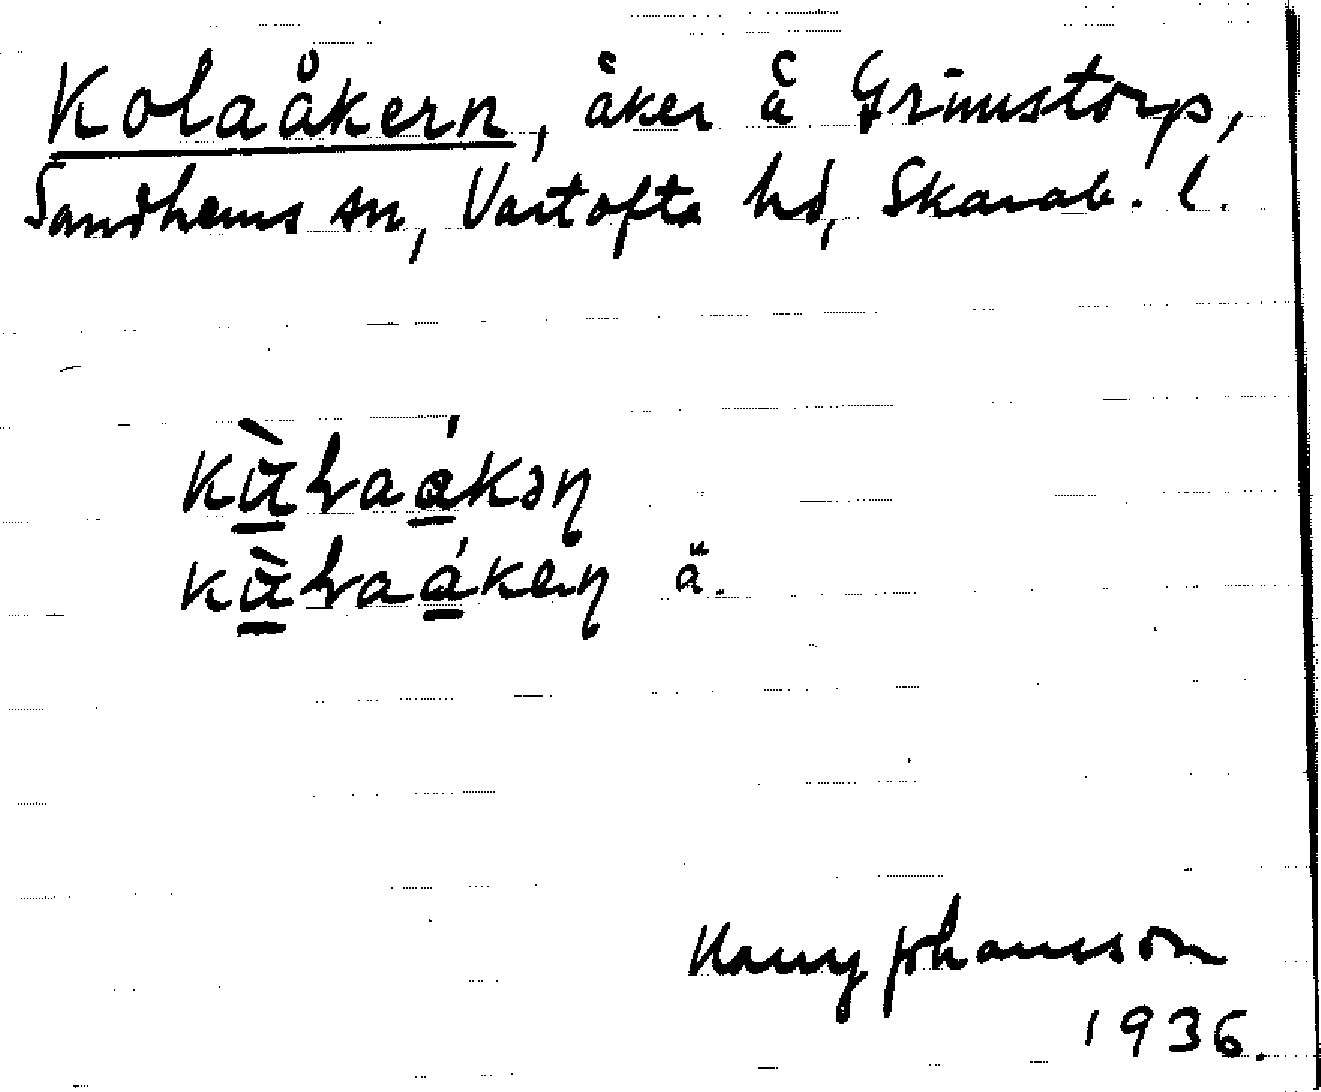 Kolaåkern, åker å Grimstorp,
Sandhems sn, Vartofta hd, Skarab. l.
ä.
Harry Johansson
1936.